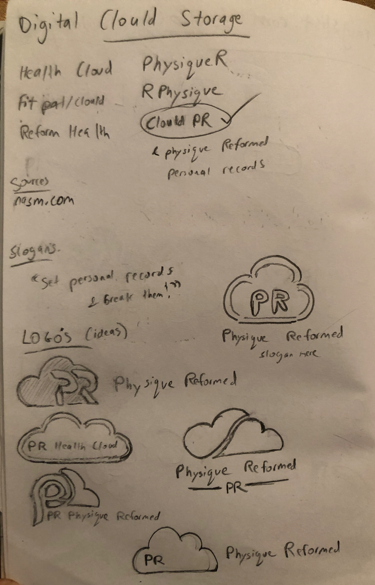 Digital Clould Storage
Health Cloud PhysiqueR
Fit pal/clould RPhysique
Reform Health Clould PR
& physique Reformed
personal records
Sources
nasm.com
Slogans.
"Set personal records
& break them!"
PR
Physique Reformed
slogan here
LOGO's (ideas)
PR Physique Reformed
PR Health Cloud
Physique Reformed
PR
PR Physique Reformed
PR Physique Reformed